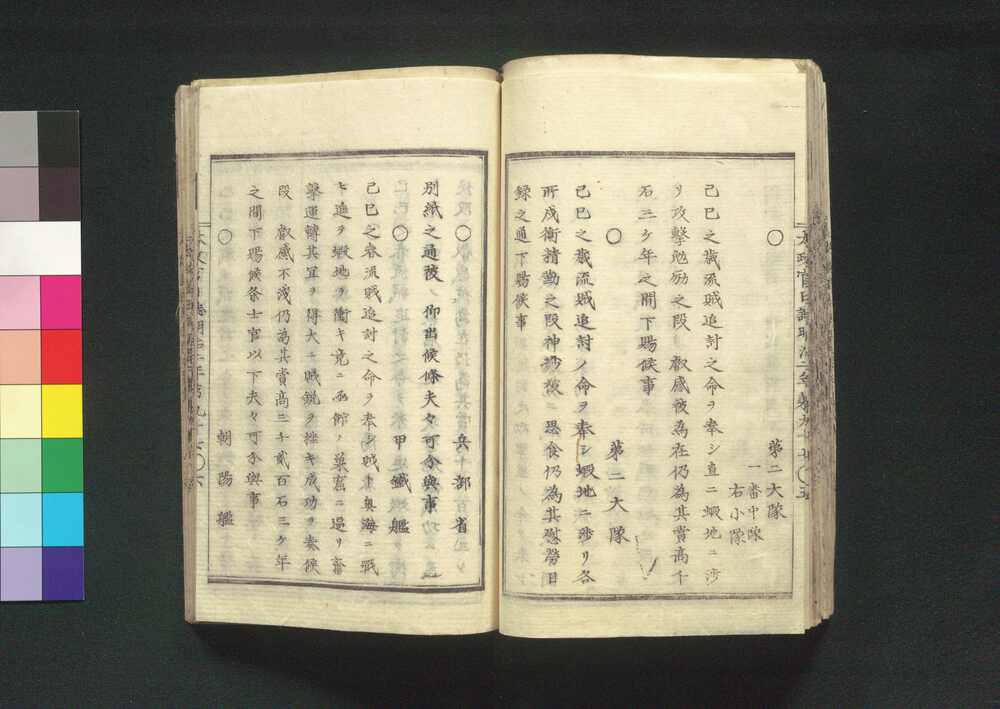 第二大隊
一番中隊
右小隊
己巳之歳流賊追討之命ヲ奉シ直ニ蝦地ニ渉
リ攻撃勉励之段 叡感被為在仍為其賞高千
石三ケ年之間下賜候事
第二大隊
己巳之歳流賊追討ノ命ヲ奉シ蝦地ニ渉リ各
所戍衛精勤之段神妙被 思食仍為其慰労目
録之通下賜候事
兵部省
別紙之通被 仰出候條夫々可令與事
甲鐵艦
己巳之春流賊追討之命ヲ奉シ賊ト奥海ニ戰
ヒ追ヲ蝦地ヲ衝キ竟ニ函館ノ巣窟ニ迫リ奮
撃運轉其宜ヲ得大ニ賊鋭ヲ挫キ成功ヲ奏候
段 叡感不浅仍為其賞高三千貳百石三ケ年
之間下賜候条士官以下夫々可分與事
朝陽艦